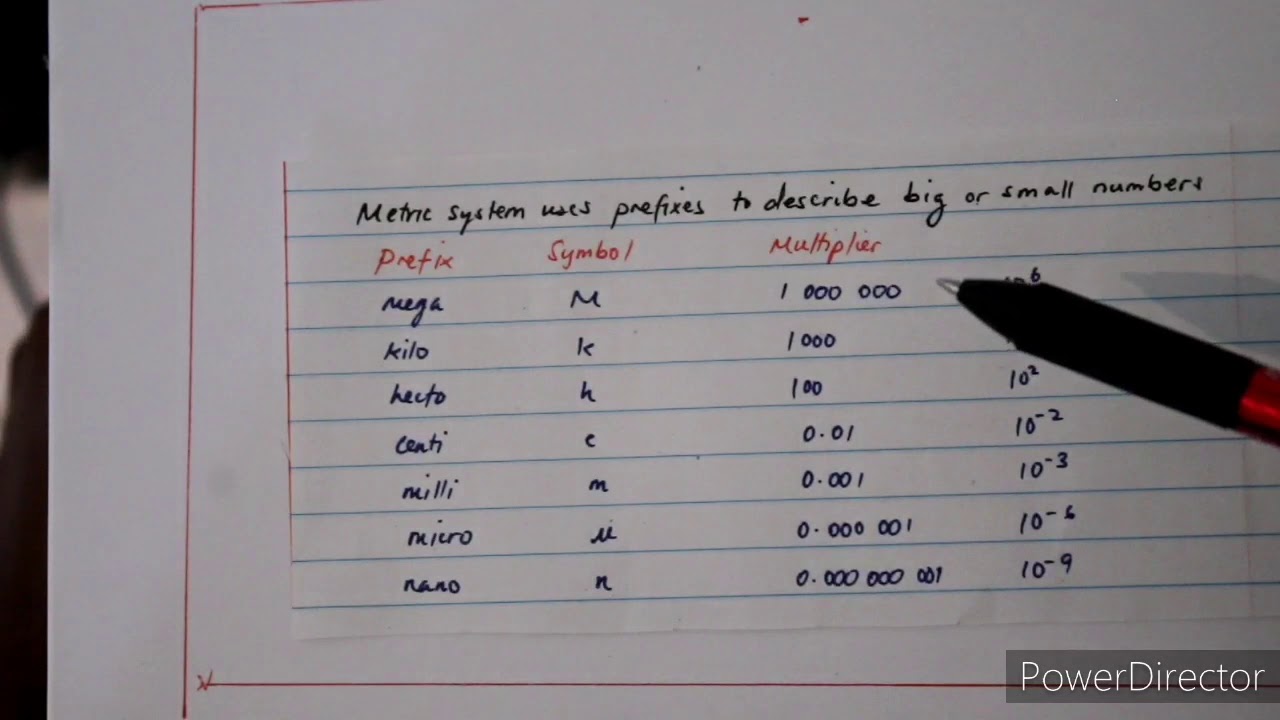 Metric system uses prefixes to describe big or small numbers
Prefix Symbol Multiplier
mega M 1 000 000
kilo k 1000
hecto h 100 10²
centi c 0.01 10⁻²
milli m 0.001 10⁻³
micro µ 0.000 001 10⁻⁶
nano n 0.000 000 001 10⁻⁹
PowerDirector